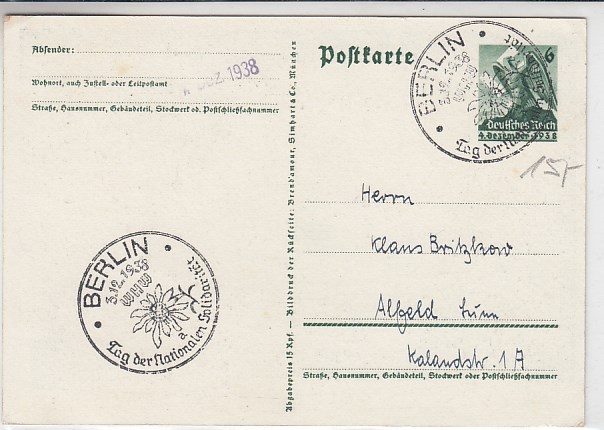 Absender:
DEZ. 1938
Wohnort, auch Zustell- oder Leitpostamt
Straße, Hausnummer, Gebäudeteil, Stockwerk od. Postschließfachnummer
BERLIN
3.12.1938
WHW
a
Tag der Nationalen Solidarität
Abgabepreis 15 Rpf. — Bilddruck der Rückseite: Brend'amour, Simhart & Co. München
Postkarte
6
Deutsches Reich
4. Dezember 1938
BERLIN
3.12.1938
WHW
Tag der
15-
Herrn
Klaus Britzkow
Alfeld Leine
Kalandstr. 17
Straße, Hausnummer, Gebäudeteil, Stockwerk oder Postschließfachnummer